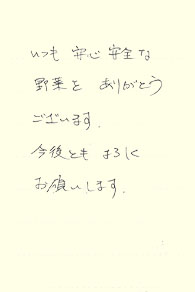 いつも 安心 安全な
野菜を ありがとう
ございます.
今後とも よろしく
お願いします.